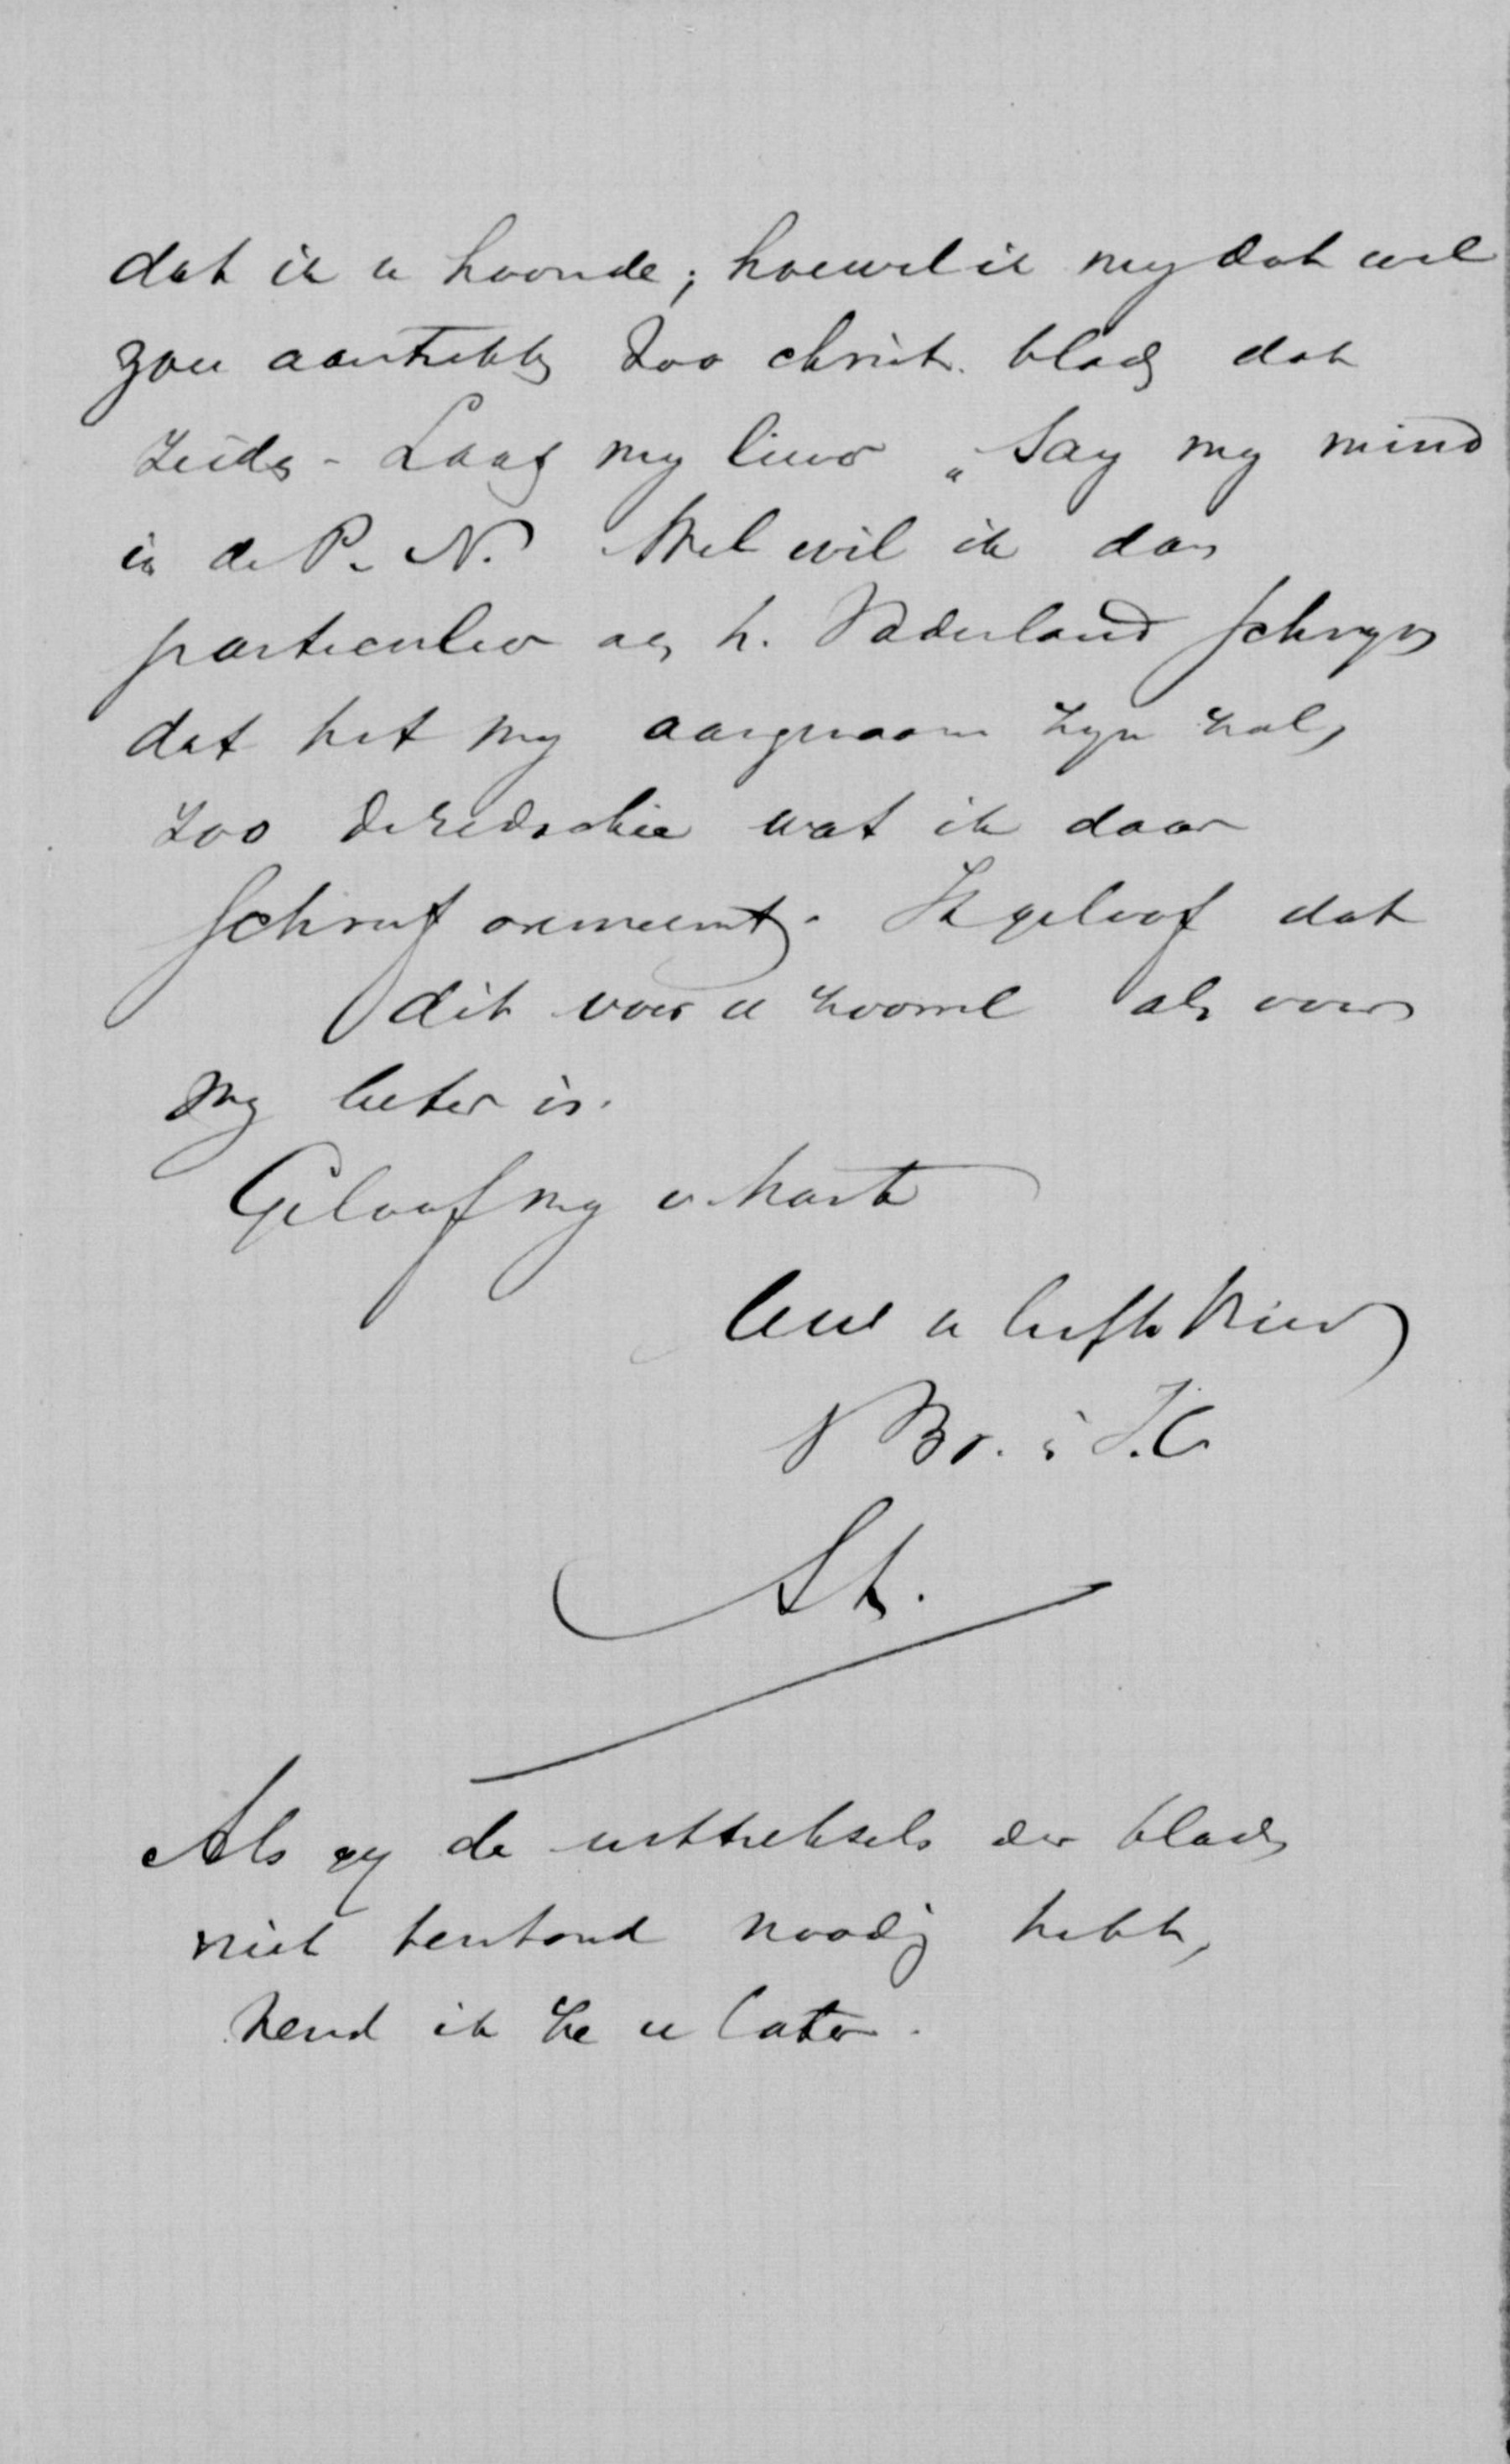 dat ik u hoonde; hoewel ik my dat wel
zou aantrekken zoo christ. bladen dat
zeiden - Laat my liever „say my mind
in de P. N. Wel wil ik dan
particulier aan h. Vaderland schryven
dat het my aangenaam zyn zal,
zoo de Redactie wat ik daar
schreef overneemt. Ik geloof dat
dit voor u zoowel als voor
my beter is.
Geloof my v. harte
Uw u liefh. Vriend
Br. i J. C
St.
Als gy de uittreksels der bladen
niet terstond noodig hebt,
zend ik ze u later.